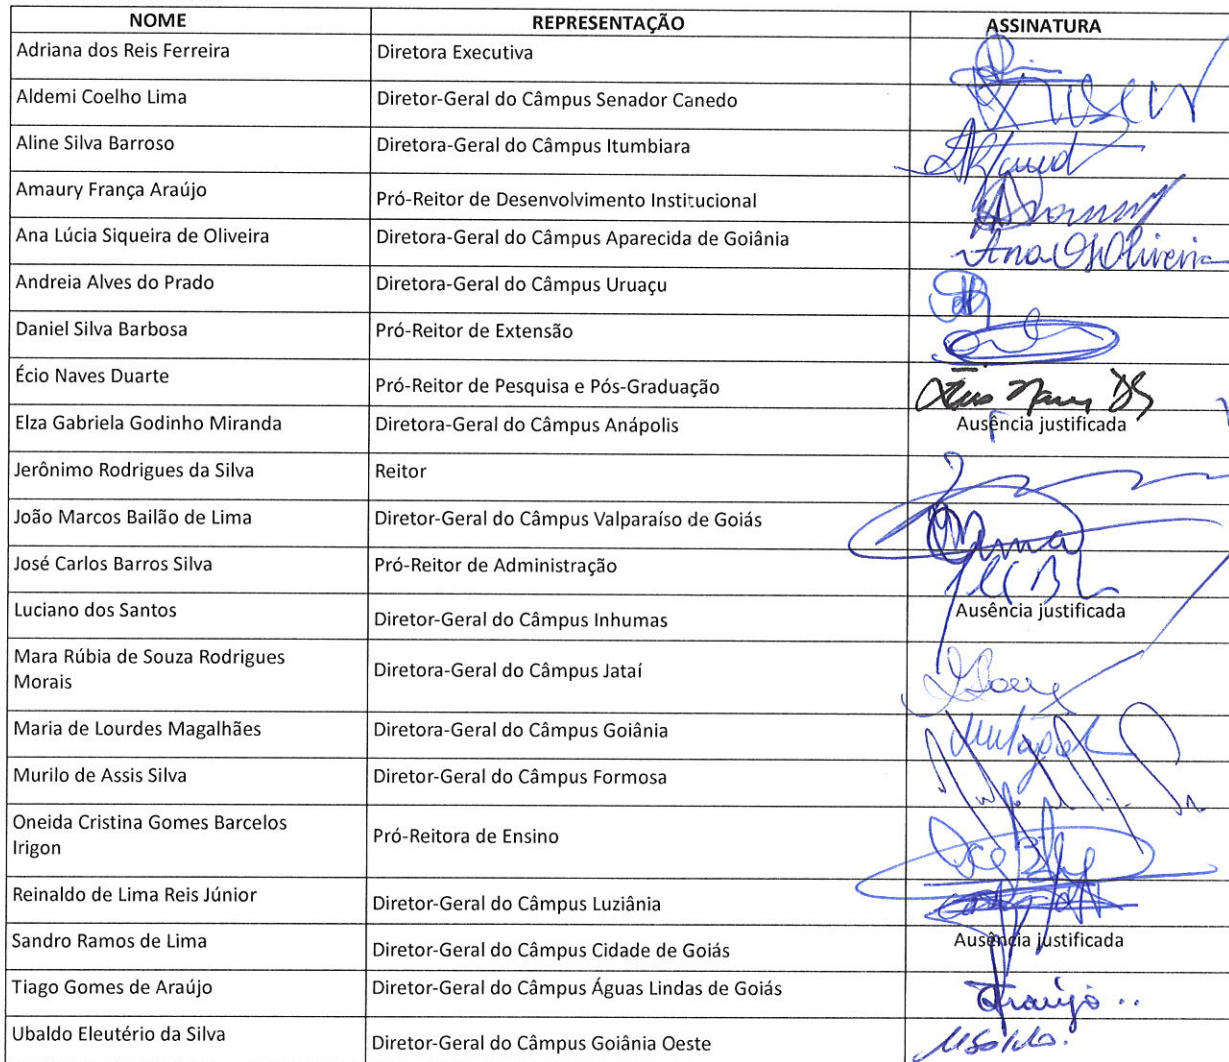 NOME REPRESENTAÇÃO ASSINATURA
Adriana dos Reis Ferreira Diretora Executiva
Aldemi Coelho Lima Diretor-Geral do Câmpus Senador Canedo
Aline Silva Barroso Diretora-Geral do Câmpus Itumbiara
Amaury França Araújo Pró-Reitor de Desenvolvimento Institucional
Ana Lúcia Siqueira de Oliveira Diretora-Geral do Câmpus Aparecida de Goiânia
Andreia Alves do Prado Diretora-Geral do Câmpus Uruaçu
Daniel Silva Barbosa Pró-Reitor de Extensão
Écio Naves Duarte Pró-Reitor de Pesquisa e Pós-Graduação
Elza Gabriela Godinho Miranda Diretora-Geral do Câmpus Anápolis Ausência justificada
Jerônimo Rodrigues da Silva Reitor
João Marcos Bailão de Lima Diretor-Geral do Câmpus Valparaíso de Goiás
José Carlos Barros Silva Pró-Reitor de Administração
Luciano dos Santos Diretor-Geral do Câmpus Inhumas Ausência justificada
Mara Rúbia de Souza Rodrigues
Morais Diretora-Geral do Câmpus Jataí
Maria de Lourdes Magalhães Diretora-Geral do Câmpus Goiânia
Murilo de Assis Silva Diretor-Geral do Câmpus Formosa
Oneida Cristina Gomes Barcelos
Irigon Pró-Reitora de Ensino
Reinaldo de Lima Reis Júnior Diretor-Geral do Câmpus Luziânia
Sandro Ramos de Lima Diretor-Geral do Câmpus Cidade de Goiás Ausência justificada
Tiago Gomes de Araújo Diretor-Geral do Câmpus Águas Lindas de Goiás Araújo
Ubaldo Eleutério da Silva Diretor-Geral do Câmpus Goiânia Oeste